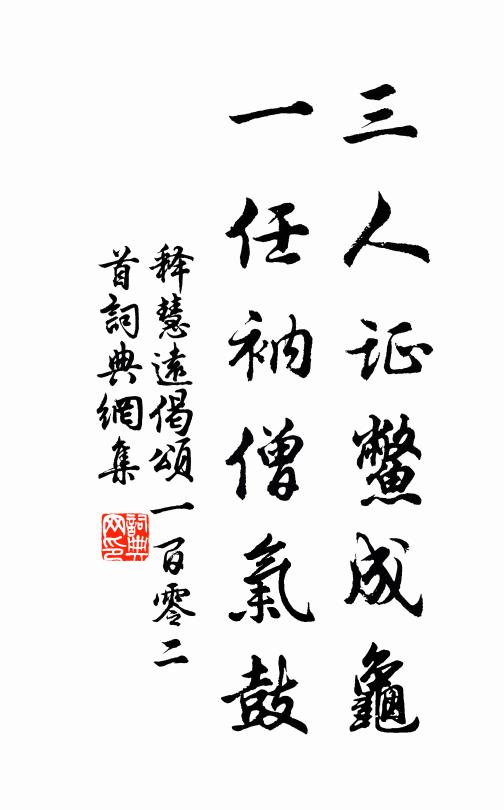 三人证鳖成龜
一任衲僧氣鼓
释慧遠偈頌一百零二
首詞典網集
詞典網印